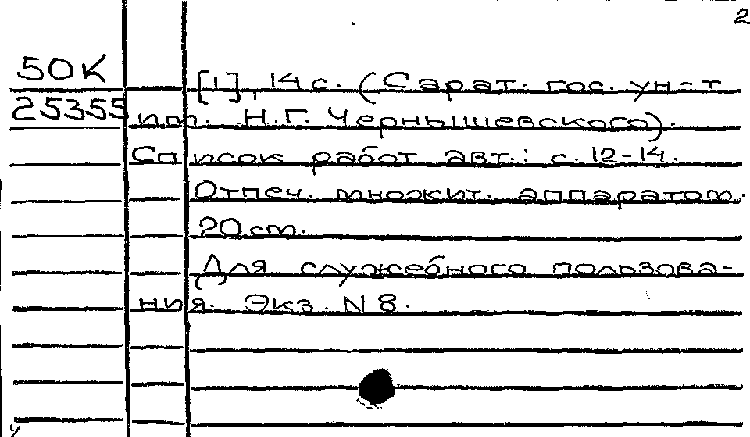 2
50К
[1], 14 с. (Сарат. гос. ун-т
25355
им. Н.Г. Чернышевского).
Список работ авт.: с. 12-14.
Отпеч. множит. аппаратом.
20 см.
Для служебного пользова-
ния. Экз. N 8.